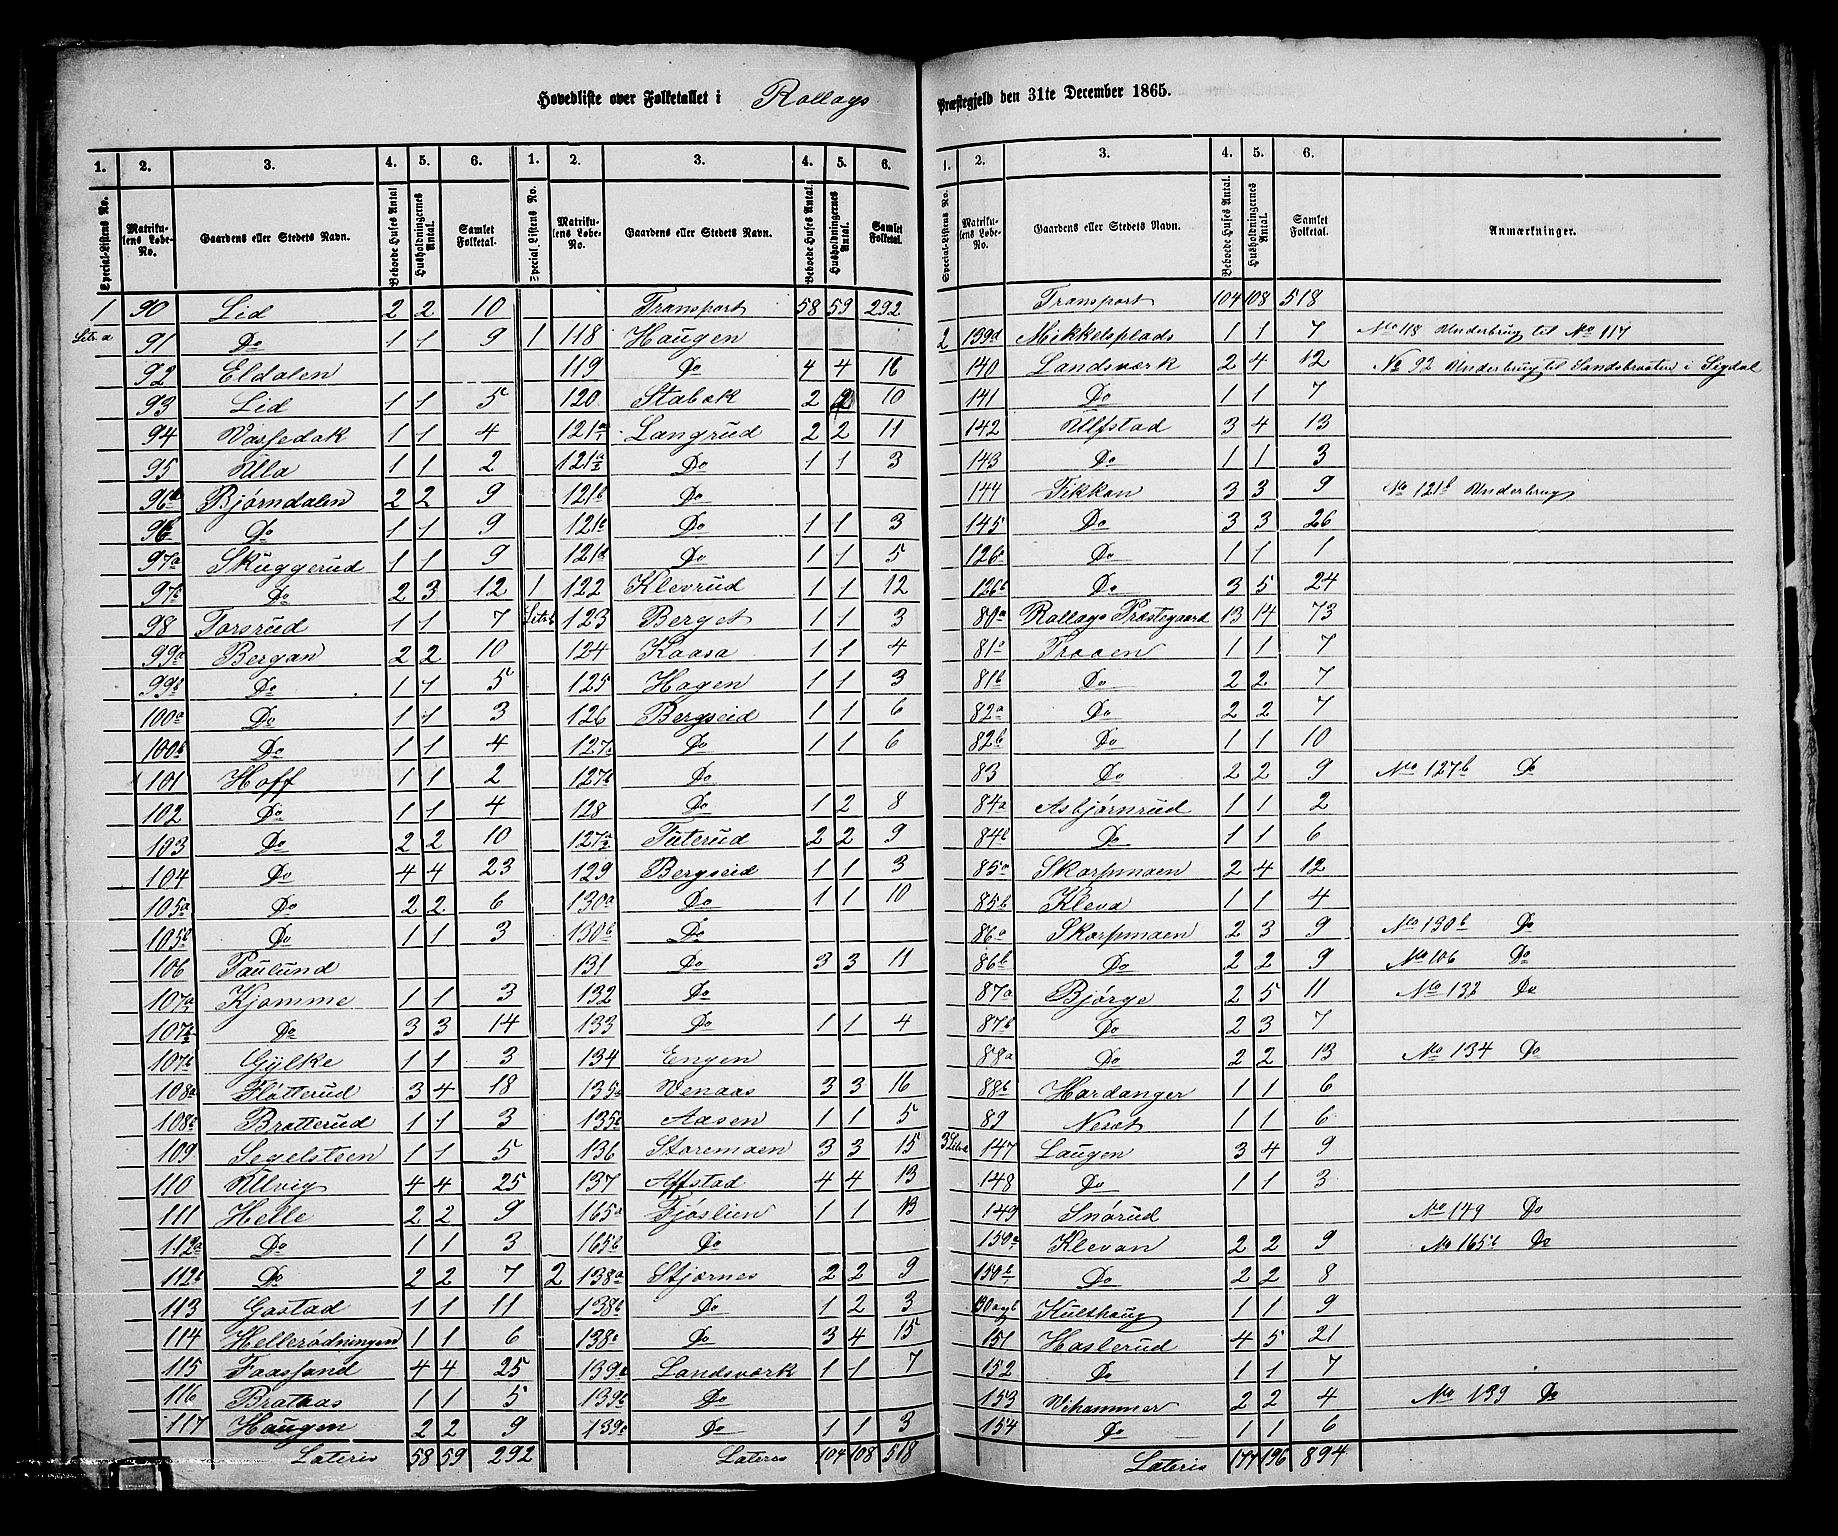 Hovedliste over Folketallet i Rollags Præstegjeld den 31te December 1865.
1. 2. 3. 4. 5. 6. 1. 2. 3. 4. 5. 6.
Special-Listens No. Matrikulens Løbe-No. Gaardens eller Stedets Navn. Beboede Huses Antal Husholdningernes Antal. Samlet Folketal. Special-Listens No. Matrikulens Løbe-No. Gaardens eller Stedets Navn. Beboede Huses Antal. Husholdningernes Antal. Samlet Folketal.
1 90 Lid 2 2 10 Transport 58 59 292
Litr. a 91 Do 1 1 9 1 118 Haugen
92 Eldalen 119 Do 4 4 16
93 Lid 1 1 5 120 Stabok 2 2 10
94 Vasfedak 1 1 4 121a1 Langrud 2 2 11
95 Ula 1 1 2 121a2 Do 1 1 3
96a Bjørndalen 2 2 9 121b Do
96b Do 1 1 9 121c Do 1 1 3
97a Skuggerud 1 1 9 121d Do 1 1 5
97b Do 2 3 12 1 122 Klevrud 1 1 12
98 Torsrud 1 1 7 Litr. b 123 Berget 1 1 3
99a Bergan 2 2 10 124 Kaasa 1 1 4
99b Do 1 1 5 125 Hagen 1 1 3
100a Do 1 1 3 126 Bergseid 1 1 6
100b Do 1 1 4 127a Do 1 1 6
101 Hoff 1 1 2 127b Do
102 Do 1 1 4 128 Do 1 2 8
103 Do 2 2 10 127a2 Tuterud 2 2 9
104 Do 4 4 23 129 Bergseid 1 1 3
105a Do 2 2 6 130a Do 1 1 10
105b Do 1 1 3 130b Do
106 Paulund 131 Do 3 3 11
107a1 Kjomme 1 1 3 132 Do
107a2 Do 3 3 14 133 Do 1 1 4
107b Gylke 1 1 3 134 Engen
108a Fløtterud 3 4 18 135a Venaas 3 3 16
108b Bratterud 1 1 3 135b Aasen 1 1 5
109 Segelsteen 1 1 5 136 Storemoen 3 3 15
110 Ulvig 4 4 25 137 Affstad 4 4 13
111 Helle 2 2 9 165a Fjøslien 1 1 13
112a Do 1 1 3 165b Do
112b Do 2 2 7 2 138a Stjørnes 2 2 9
113 Gostad 1 1 11 138b Do 1 2 3
114 Hellerødningen 1 1 6 138c Do 3 4 15
115 Faasfand 4 4 25 139a Landsværk 1 1 7
116 Brataas 1 1 5 139b Do
117 Haugen 2 2 9 139c Do 1 1 3
Lateris 58 59 292 Lateris 104 108 518
1. 2. 3. 4. 5. 6.
Special-Listens No. Matrikulens Løbe-No. Gaardens eller Stedets Navn. Beboede Huses Antal. Husholdningernes Antal. Samlet Folketal. Anmærkninger.
Transport 104 108 518
2 139d Mikkelsplads 1 1 7 No 118 Underbrug til No 117
140 Landsværk 2 4 12 No 92 Underbrug til Sandsbraaten i Sigdal
141 Do 1 1 7
142 Ulfstad 3 4 13
143 Do 1 1 3
144 Tikkon 3 3 9 No 121b Underbrug
145 Do 3 3 26
126a Do 1 1 1
126b Do 3 5 24
80a Rollags Præstegaard 13 14 73
81a Traaen 1 1 7
81b Do 2 2 7
82a Do 2 2 7
82b Do 1 1 10
83 Do 2 2 9 No 127b Do
84a Asbjørnrud 1 1 2
84b Do 1 1 6
85a Skarpmoen 2 4 12
85b Kleva 1 1 4
86a Skarpmoen 2 3 9 No 130b Do
86b Do 2 2 9 No 106 Do
87a Bjørge 2 5 11 No 132 Do
87b Do 2 3 7
88a Do 2 2 13 No 134 Do
88b Hardanger 1 1 6
89 Nesøt 1 1 6
3 Litr. a 147 Laugen 3 4 9
148 Do 1 1 3
149 Snørud No 149 Do
150a Klevan 2 2 9 No 165b Do
150b Do 2 2 8
Kulthaug 1 1 9
151 Haslerud 4 5 21
152 Do 1 1 7
153 Vihammer 2 2 4 No 139 Do
154 Do 1 1 6
Lateris 177 196 894